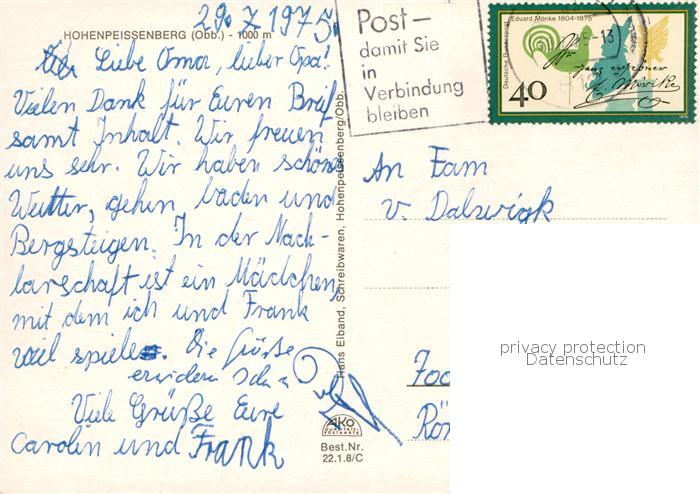 29. 7. 1975.
HOHENPEISSENBERG (Obb.) - 1000 m
Liebe Oma, lieber Opa!
Vielen Dank für Euren Brief
samt Inhalt. Wir freuen
uns sehr. Wir haben schönes
Wetter, gehen baden und
Bergsteigen. In der Nach-
barschaft ist ein Mädchen,
mit dem ich und Frank
viel spiele. Die Grüße
erwidern
Viele Grüße Eure
Carolin und Frank
Hans Eiband, Schreibwaren, Hohenpeissenberg/Obb.
AKO
Best.Nr.
22.1.8/C
Post–
damit Sie
in
Verbindung
bleiben
Eduard Mörike 1804-1875
Deutsche Bundespost
40
E. Mörike
An Fam
v. Dalwigk
privacy protection
Datenschutz